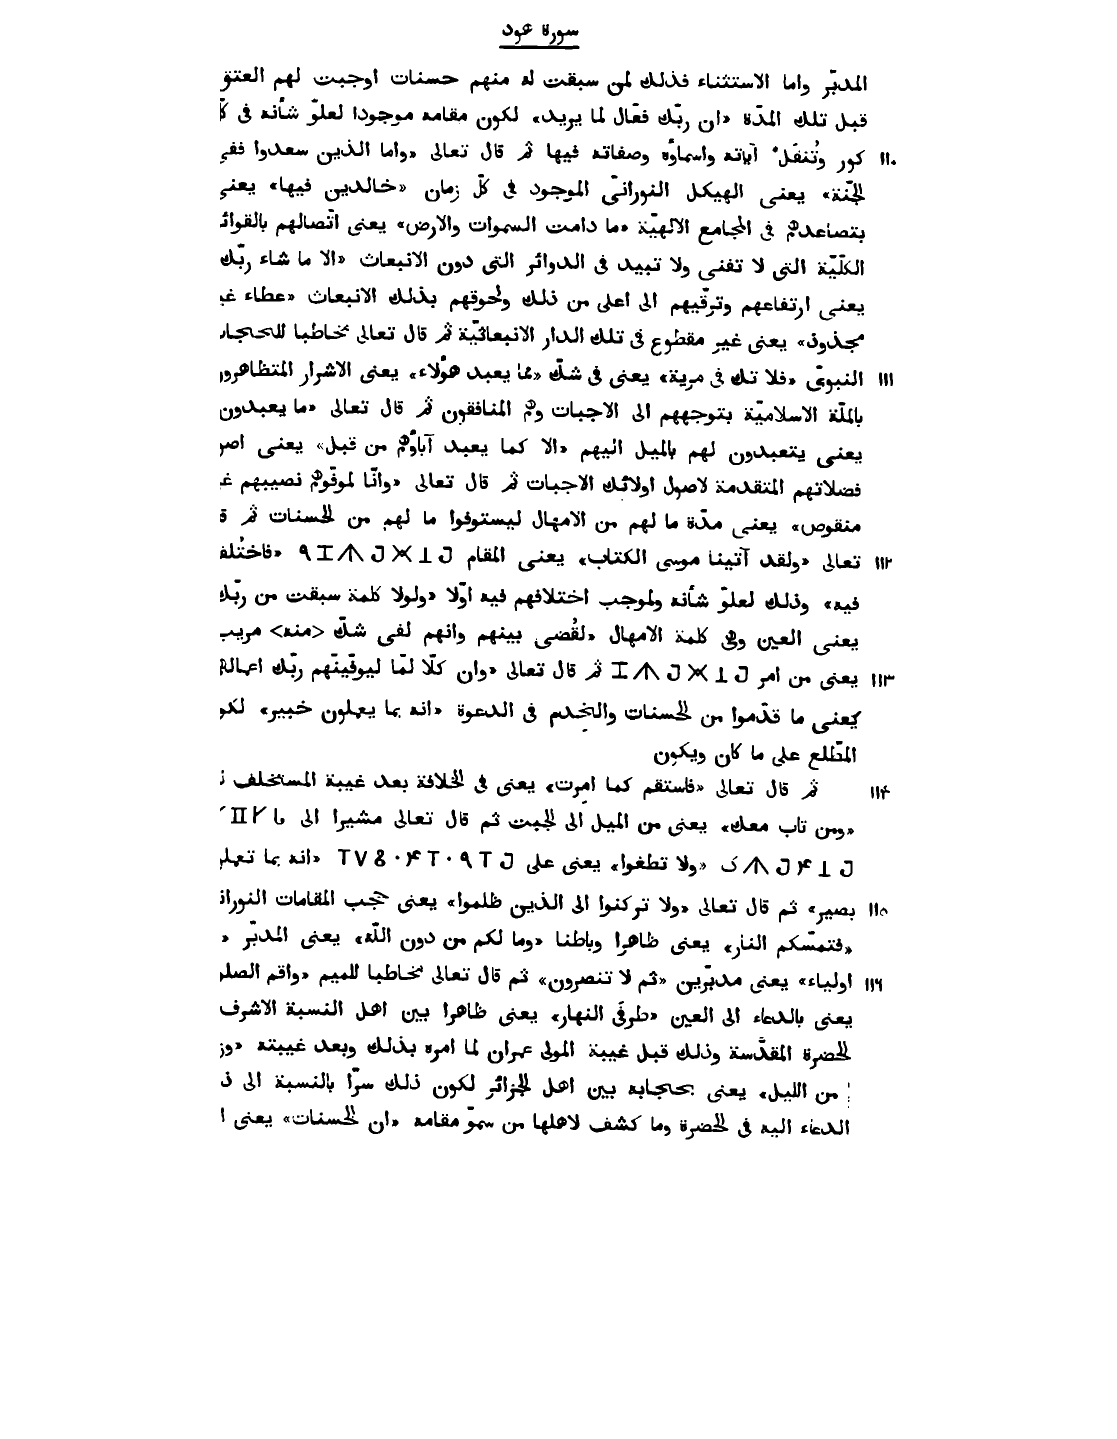 سورة هود
المدبّر واما الاستثناء فذلك لمن سبقت له منهم حسنات اوجبت لهم العتق
قبل تلك المدّة «ان ربّك فعّال لما يريد» لكون مقامه موجودا لعلوّ شأنه فى
١١٠ كور وتُنقَل آياته واسماؤه وصفاته فيها ثم قال تعالى «واما الذين سعدوا ففى
الجنّة» يعنى الهيكل النورانىّ الموجود فى كلّ زمان «خالدين فيها» يعنى
بتصاعدهم فى المجامع الالهيّة «ما دامت السموات والارض» يعنى اتّصالهم
الكلّيّة التى لا تفنى ولا تبيد فى الدوائر التى دون الانبعاث «الا ما شاء ربّك
يعنى ارتفاعهم وترقّيهم الى اعلى من ذلك ولحوقهم بذلك الانبعاث «عطاء
مجذوذ» يعنى غير مقطوع فى تلك الدار الانبعاثيّة ثم قال تعالى مخاطبا
١١١ النبوىّ «فلا تك فى مرية» يعنى فى شكّ «ممّا يعبد هؤلاء» يعنى الاشرار المتظاهرون
بالملّة الاسلاميّة بتوجههم الى الاجبات وهم المنافقون ثم قال تعالى «ما يعبدون
يعنى يتعبدون لهم بالميل اليهم «الا كما يعبد آباؤهم من قبل» يعنى
فضلاتهم المتقدمة لاصول اولائك الاجبات ثم قال تعالى «وانّا لموفّوهم نصيبهم
منقوص» يعنى مدّة ما لهم من الامهال ليستوفوا ما لهم من الحسنات ثم
١١٢ تعالى «ولقد آتينا موسى الكتاب» يعنى المقام «فاختُلف
فيه» وذلك لعلوّ شأنه ولموجب اختلافهم فيه اوّلا «ولولا كلمة سبقت من ربّك
يعنى العين وهى كلمة الامهال «لقُضى بينهم وانهم لفى شكّ <منه> مريب
١١٣ يعنى من امر ثم قال تعالى «وان كلّا لمّا ليوفّينّهم ربّك اعمالهم
يعنى ما قدّموا من الحسنات والتخدم فى الدعوة «انه بما يعملون خبير»
المطّلع على ما كان ويكون
١١٤ ثم قال تعالى «فاستقم كما امرت» يعنى فى الخلافة بعد غيبة المستخلف
«ومن تاب معك» يعنى من الميل الى الجبت ثم قال تعالى مشيرا الى
«ولا تطغوا» يعنى على «انه بما
١١٥ بصير» ثم قال تعالى «ولا تركنوا الى الذين ظلموا» يعنى حجب المقامات
«فتمسّكم النار» يعنى ظاهرا وباطنا «وما لكم من دون اللّه» يعنى المدبّر «
١١٦ اولياء» يعنى مدبّرين «ثم لا تنصرون» ثم قال تعالى مخاطبا للميم «واقم
يعنى بالدعاء الى العين «طرفَى النهار» يعنى ظاهرا بين اهل النسبة الاشرف
الحضرة المقدّسة وذلك قبل غيبة المولى عمران لما امره بذلك وبعد غيبته
من الليل» يعنى بحجابه بين اهل الجزائر لكون ذلك سرّا بالنسبة الى
الدعاء اليه فى الحضرة وما كشف لاهلها من سموّ مقامه «ان الحسنات» يعنى